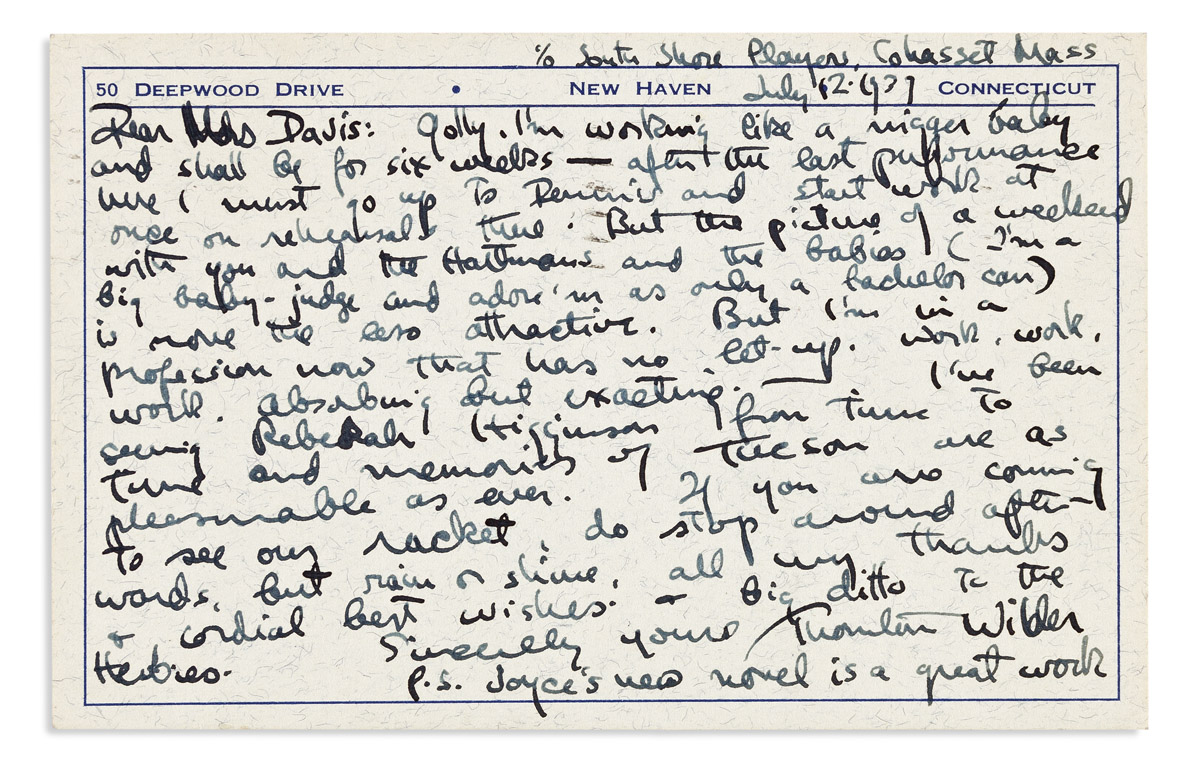 c/o South Shore Players, Cohasset Mass
50 DEEPWOOD DRIVE • NEW HAVEN July 12. 1939 CONNECTICUT
Dear Mrs Davis: Golly. I'm working like a nigger baby
and shall be for six weeks — after the last performance
here I must go up to Dennis and start work at
once on rehearsals there. But the picture of a weekend
with you and the Hattmans and the babies (I'm a
big baby-judge and adore 'm as only a bachelor can)
is none the less attractive. But I'm in a
profession now that has no let-up. work, work,
work. absorbing but exacting. — I've been
seeing Rebekah Higginson from time to
time and memories of Tucson are as
pleasurable as ever. If you are coming
to see our racket, do stop around after-
wards, but rain or shine, all my thanks
& cordial best wishes. — Big ditto to the
Herbies. Sincerely yours Thornton Wilder
P.S. Joyce's new novel is a great work